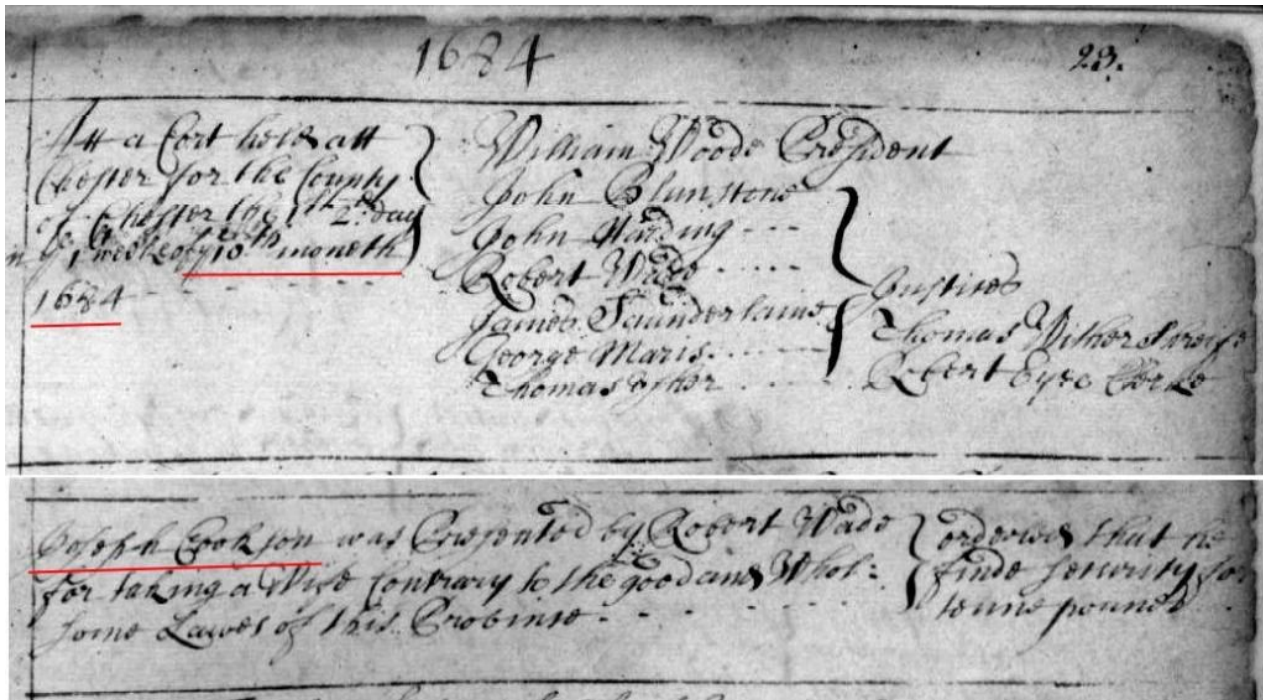 1684
23.
Att a Cort held att
Chester for the County
of Chester the 1st 2d day
in ye 1 weeke of ye 10th moneth
1684
William Woode President
John Blunstone
John Harding
Robert Wade
James Saunderlaine
George Maris
Thomas Usher
Justices
Thomas Withers Shreife
Robert Eyre Clerke
Joseph Cookson was Presented by Robert Wade
for taking a Wife Contrary to the good and Whol:
some Lawes of this Province
ordered that he
finde security for
tenne pounds